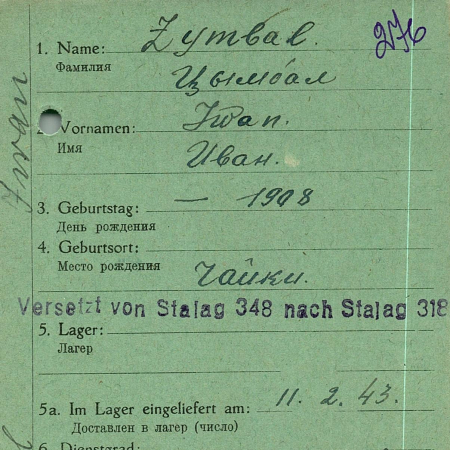 1. Name: Zymbal.
276
Фамилия
Цымбал
2. Vornamen: Iwan.
Имя
Иван.
3. Geburtstag: — 1908
День рождения
4. Geburtsort:
Место рождения
Чайки.
Versetzt von Stalag 348 nach Stalag 318
5. Lager:
Лагер
5a. Im Lager eingeliefert am: 11. 2. 43.
Доставлен в лагер (число)
6. Dienstgrad: